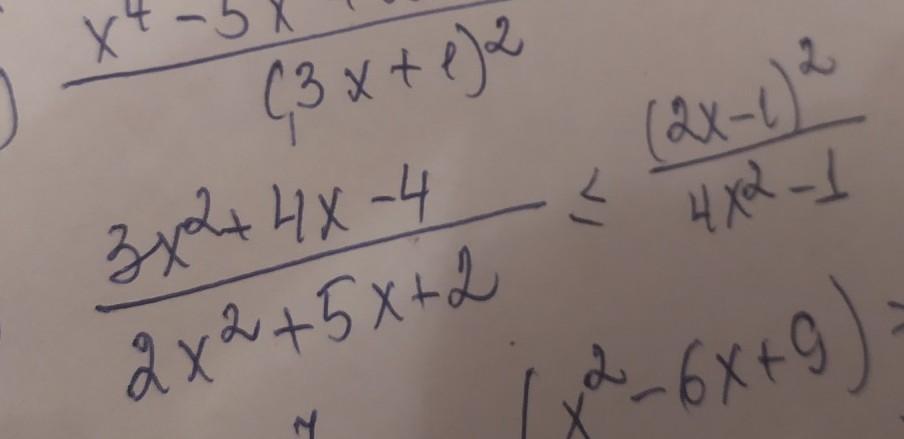 x⁴ - 5x
(3x+1)²
3x² + 4x - 4 / 2x² + 5x + 2 ≤ (2x-1)² / 4x² - 1
(x² - 6x + 9)